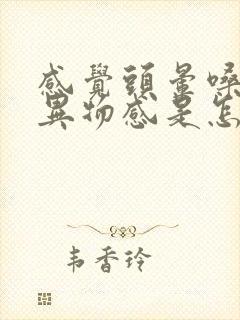 感覺頭暈嗓
異物感是怎
韦香玲